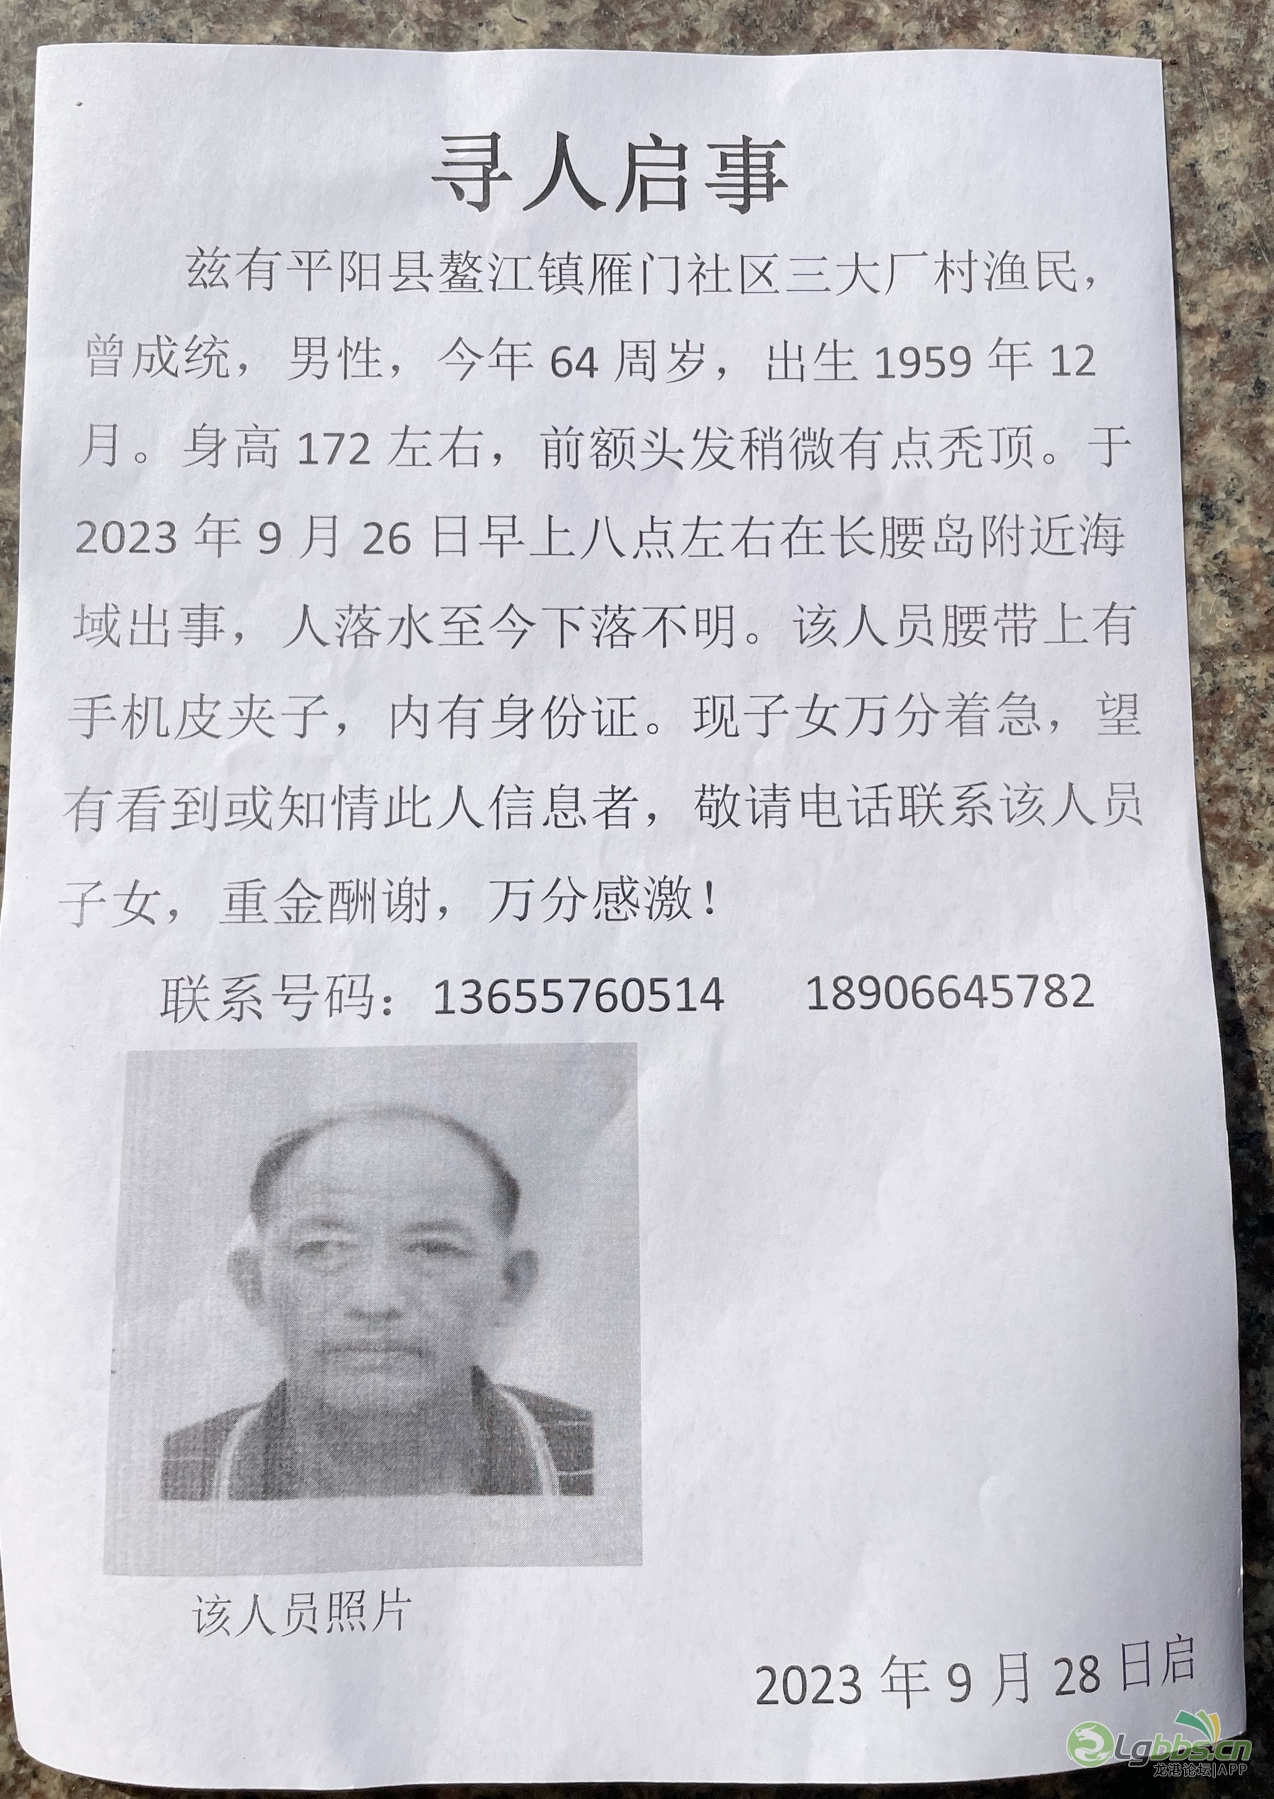 寻人启事
兹有平阳县鳌江镇雁门社区三大厂村渔民，
曾成统，男性，今年 64 周岁，出生 1959 年 12
月。身高 172 左右，前额头发稍微有点秃顶。于
2023 年 9 月 26 日早上八点左右在长腰岛附近海
域出事，人落水至今下落不明。该人员腰带上有
手机皮夹子，内有身份证。现子女万分着急，望
有看到或知情此人信息者，敬请电话联系该人员
子女，重金酬谢，万分感激！
联系号码：13655760514 18906645782
该人员照片
2023 年 9 月 28 日启
Lgbbs.cn
龙港论坛|APP